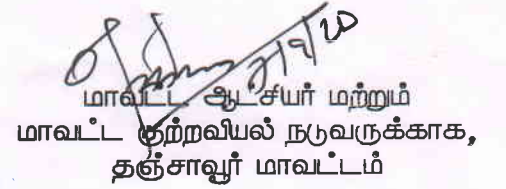 மாவட்ட ஆட்சியர் மற்றும்
மாவட்ட குற்றவியல் நடுவருக்காக,
தஞ்சாவூர் மாவட்டம்